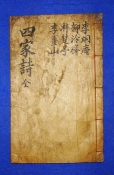 李炯庵
柳泠齋
朴楚亭
李薑山
四家詩 全